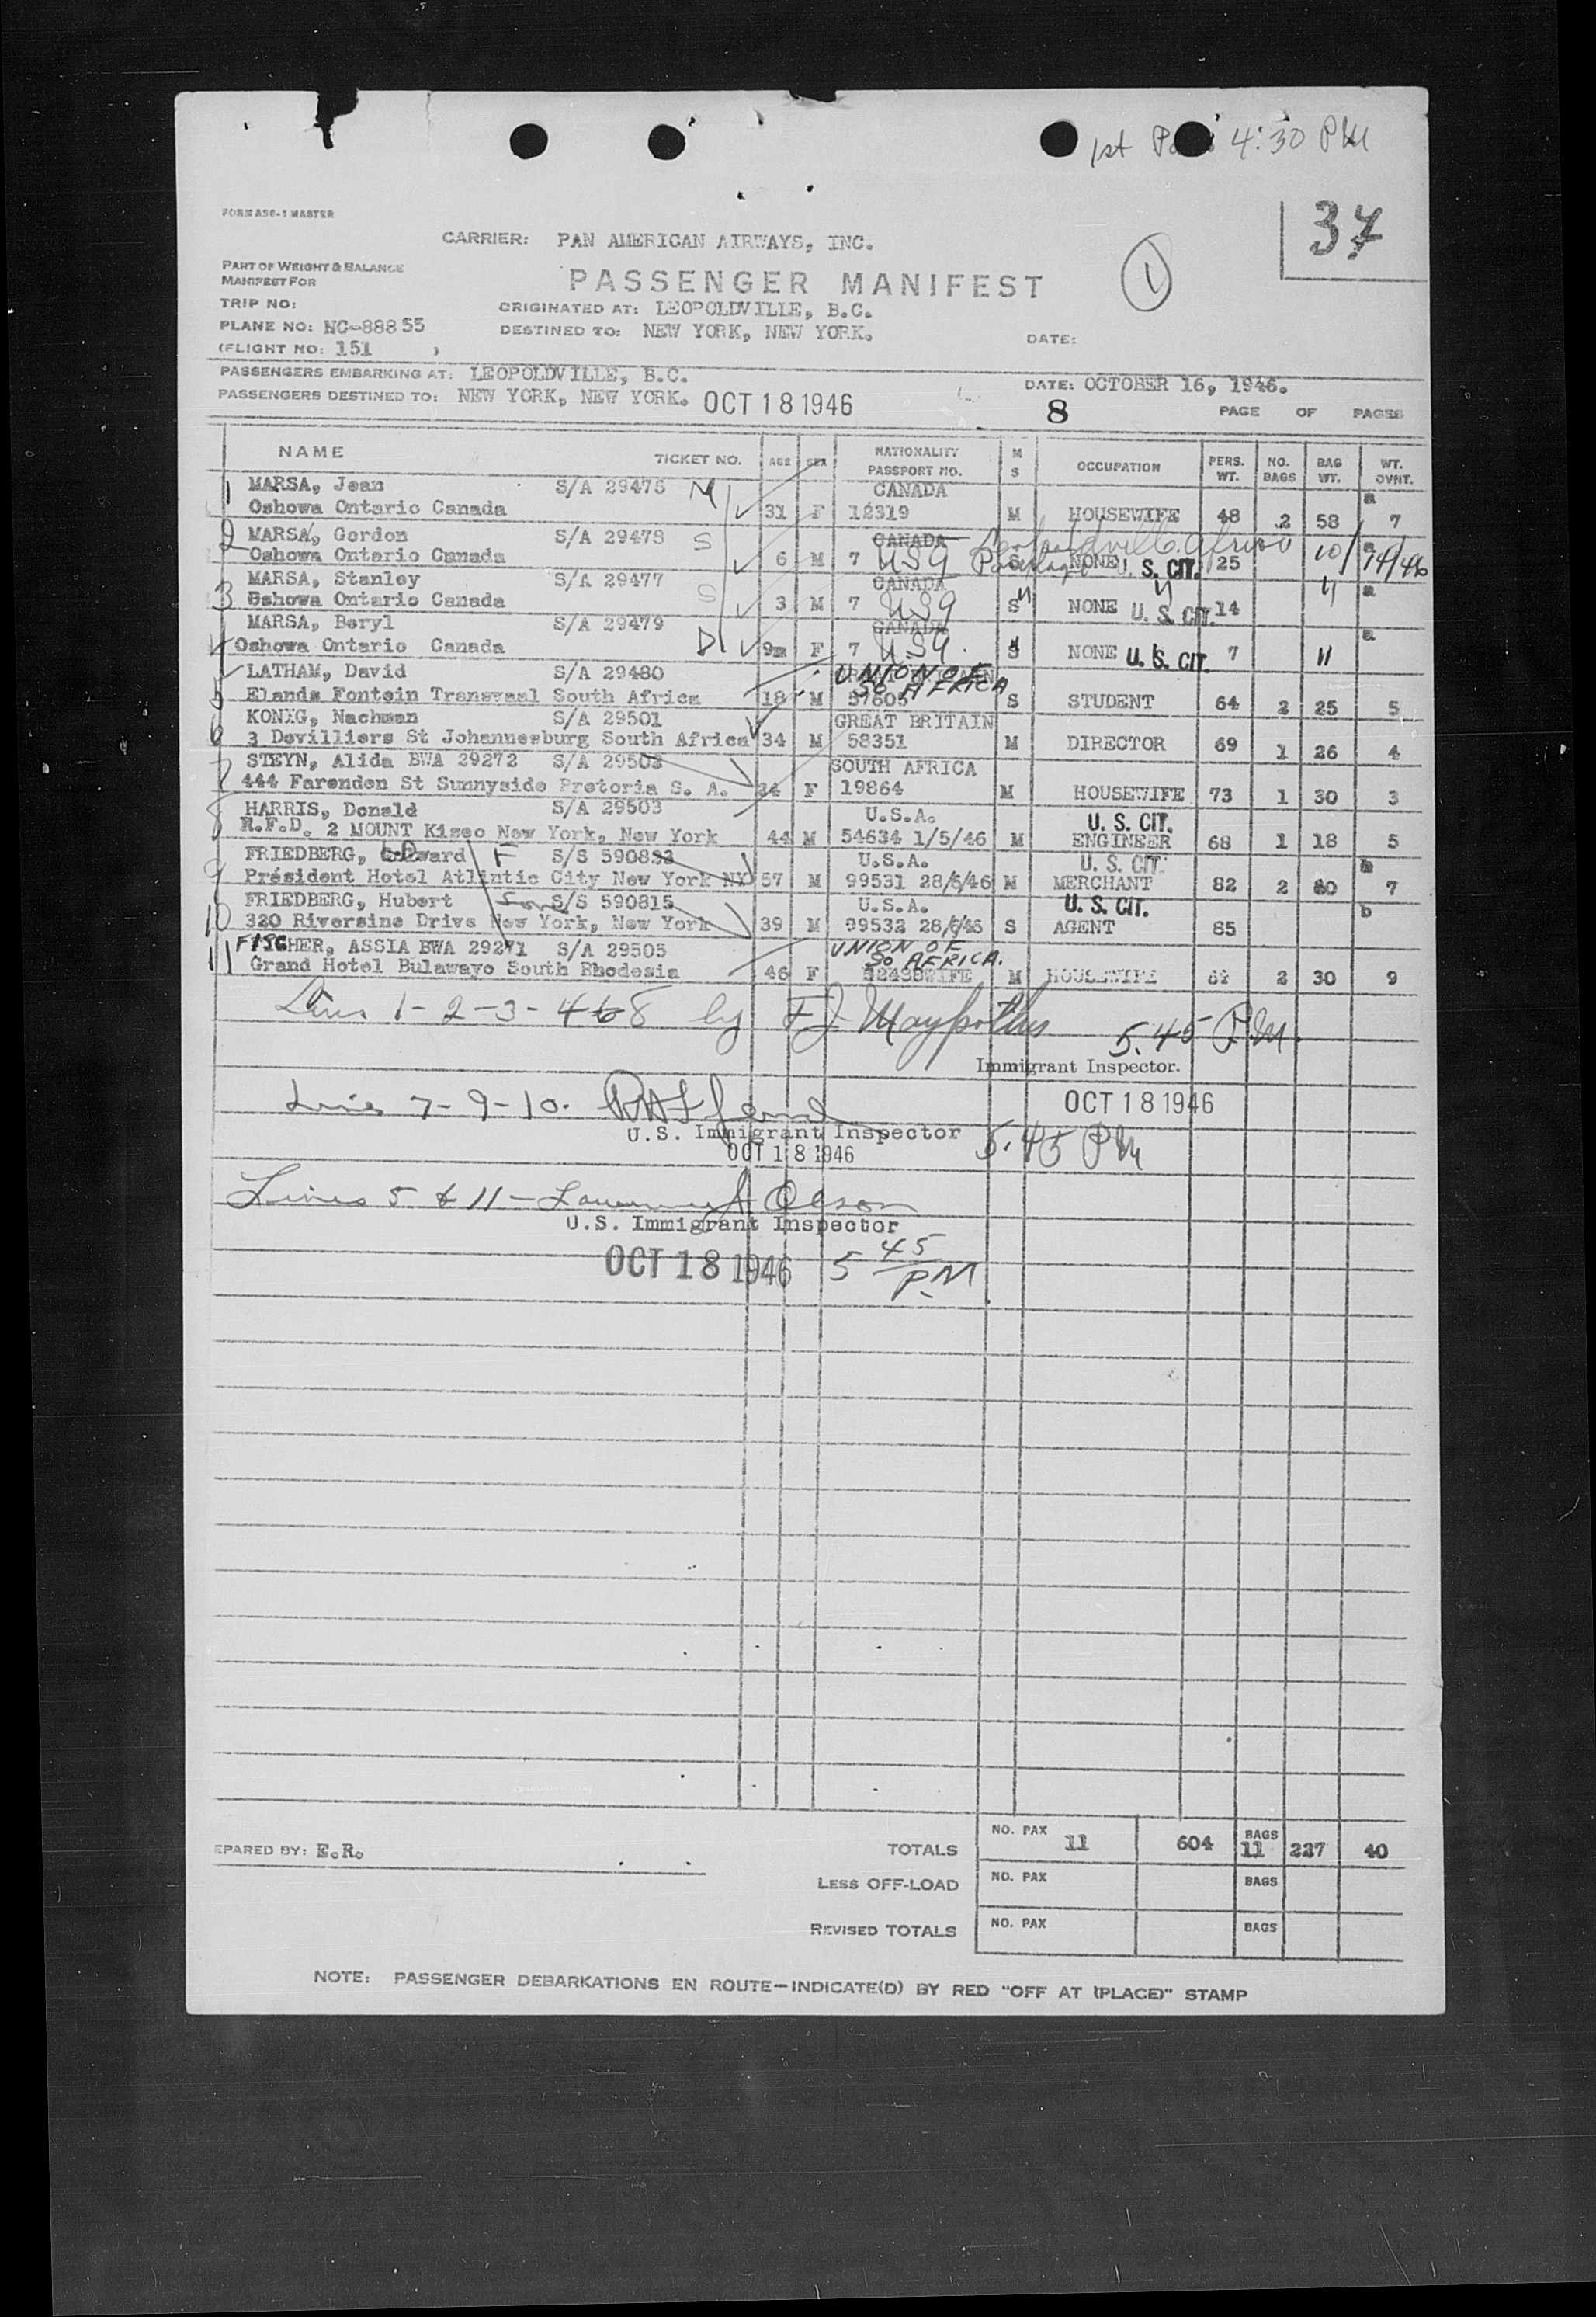 1st 4:30 PM
37
FORM ASC-1 MASTER
CARRIER: PAN AMERICAN AIRWAYS, INC.
1
PART OF WEIGHT & BALANCE
MANIFEST FOR
PASSENGER MANIFEST
TRIP NO:
ORIGINATED AT: LEOPOLDVILLE, B.C.
PLANE NO: NC-88855
DESTINED TO: NEW YORK, NEW YORK.
(FLIGHT NO: 151 )
DATE:
PASSENGERS EMBARKING AT: LEOPOLDVILLE, B.C. DATE: OCTOBER 16, 1946.
PASSENGERS DESTINED TO: NEW YORK, NEW YORK. OCT 18 1946 8 PAGE OF PAGES
NAME TICKET NO. AGE SEX NATIONALITY PASSPORT NO. M S OCCUPATION PERS. WT. NO. BAGS BAG WT. WT. OVNT.
1 MARSA, Jean S/A 29476 M CANADA a
Oshowa Ontario Canada 31 F 12319 M HOUSEWIFE 48 2 58 7
2 MARSA, Gordon S/A 29478 S CANADA Leopoldville Africa 10/14/46 a
Oshowa Ontario Canada 6 M 7 USA S NONE U. S. CIT. 25
3 MARSA, Stanley S/A 29477 S CANADA " " " a
Oshowa Ontario Canada 3 M 7 USA S NONE U. S. CIT. 14
4 MARSA, Beryl S/A 29479 D CANADA a
Oshowa Ontario Canada 9m F 7 USA S NONE U. S. CIT. 7 "
5 LATHAM, David S/A 29480 UNION OF SO AFRICA
Elands Fontein Transvaal South Africa 18 M 57605 S STUDENT 64 2 25 5
6 KONIG, Nachman S/A 29501 GREAT BRITAIN
3 Devilliers St Johannesburg South Africa 34 M 58351 M DIRECTOR 69 1 26 4
7 STEYN, Alida BWA 29272 S/A 29502 SOUTH AFRICA
444 Farenden St Sunnyside Pretoria S. A. 34 F 19864 M HOUSEWIFE 73 1 30 3
8 HARRIS, Donald S/A 29503 U.S.A. U. S. CIT.
R.F.D. 2 MOUNT Kisco New York, New York 44 M 54634 1/5/46 M ENGINEER 68 1 18 5
9 FRIEDBERG, Edward F S/S 590833 U.S.A. U. S. CIT. b
Président Hotel Atlintic City New York NY 57 M 99531 28/6/46 M MERCHANT 82 2 80 7
10 FRIEDBERG, Hubert Son S/S 590815 U.S.A. U. S. CIT. b
320 Riversine Drivs New York, New York 39 M 99532 28/6/46 S AGENT 85
11 FISCHER, ASSIA BWA 29271 S/A 29505 UNION OF SO AFRICA.
Grand Hotel Bulawayo South Rhodesia 46 F M HOUSEWIFE 2 30 9
Lines 1-2-3-4 6 8 by 5.45 P.M.
Immigrant Inspector.
OCT 18 1946
Lines 7-9-10.
U.S. Immigrant Inspector
OCT 18 1946 5.45 PM
Lines 5 & 11 - Olson
U.S. Immigrant Inspector
OCT 18 1946 5 45 P.M
EPARED BY: E.R. TOTALS NO. PAX 11 604 BAGS 11 227 40
LESS OFF-LOAD NO. PAX BAGS
REVISED TOTALS NO. PAX BAGS
NOTE: PASSENGER DEBARKATIONS EN ROUTE—INDICATE(D) BY RED "OFF AT (PLACE)" STAMP